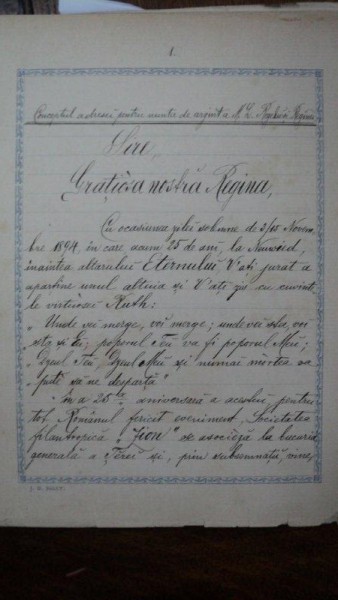 1.
Conceptul adresei pentru nunta de argint a M. L. Regelui și Regina
Sire,
Grațiósa nostră Regina,
Cu ocasiunea zilei solemne de 3/15 Novem-
bre 1894, în care acum 25 de ani, la Neuwied,
înaintea altarului Eternului V'ați jurat a
aparține unul altuia și V'ați zis cu cuvinte-
le virtuósei Ruth:
„Unde vei merge, voi merge; unde vei sta, voi
sta și eu; poporul Tĕu va fi poporul Meŭ;
„Dzeul Tĕu, Dzeul Meŭ și numai mórtea va
„puté să ne despartă"
În a 25ea aniversară a acestui, pentru
tot Românul fericit eveniment, Societatea
filantropică „Zion" se asociéză la bucuria
generală a Țerei și, prin subsemnații, vine,